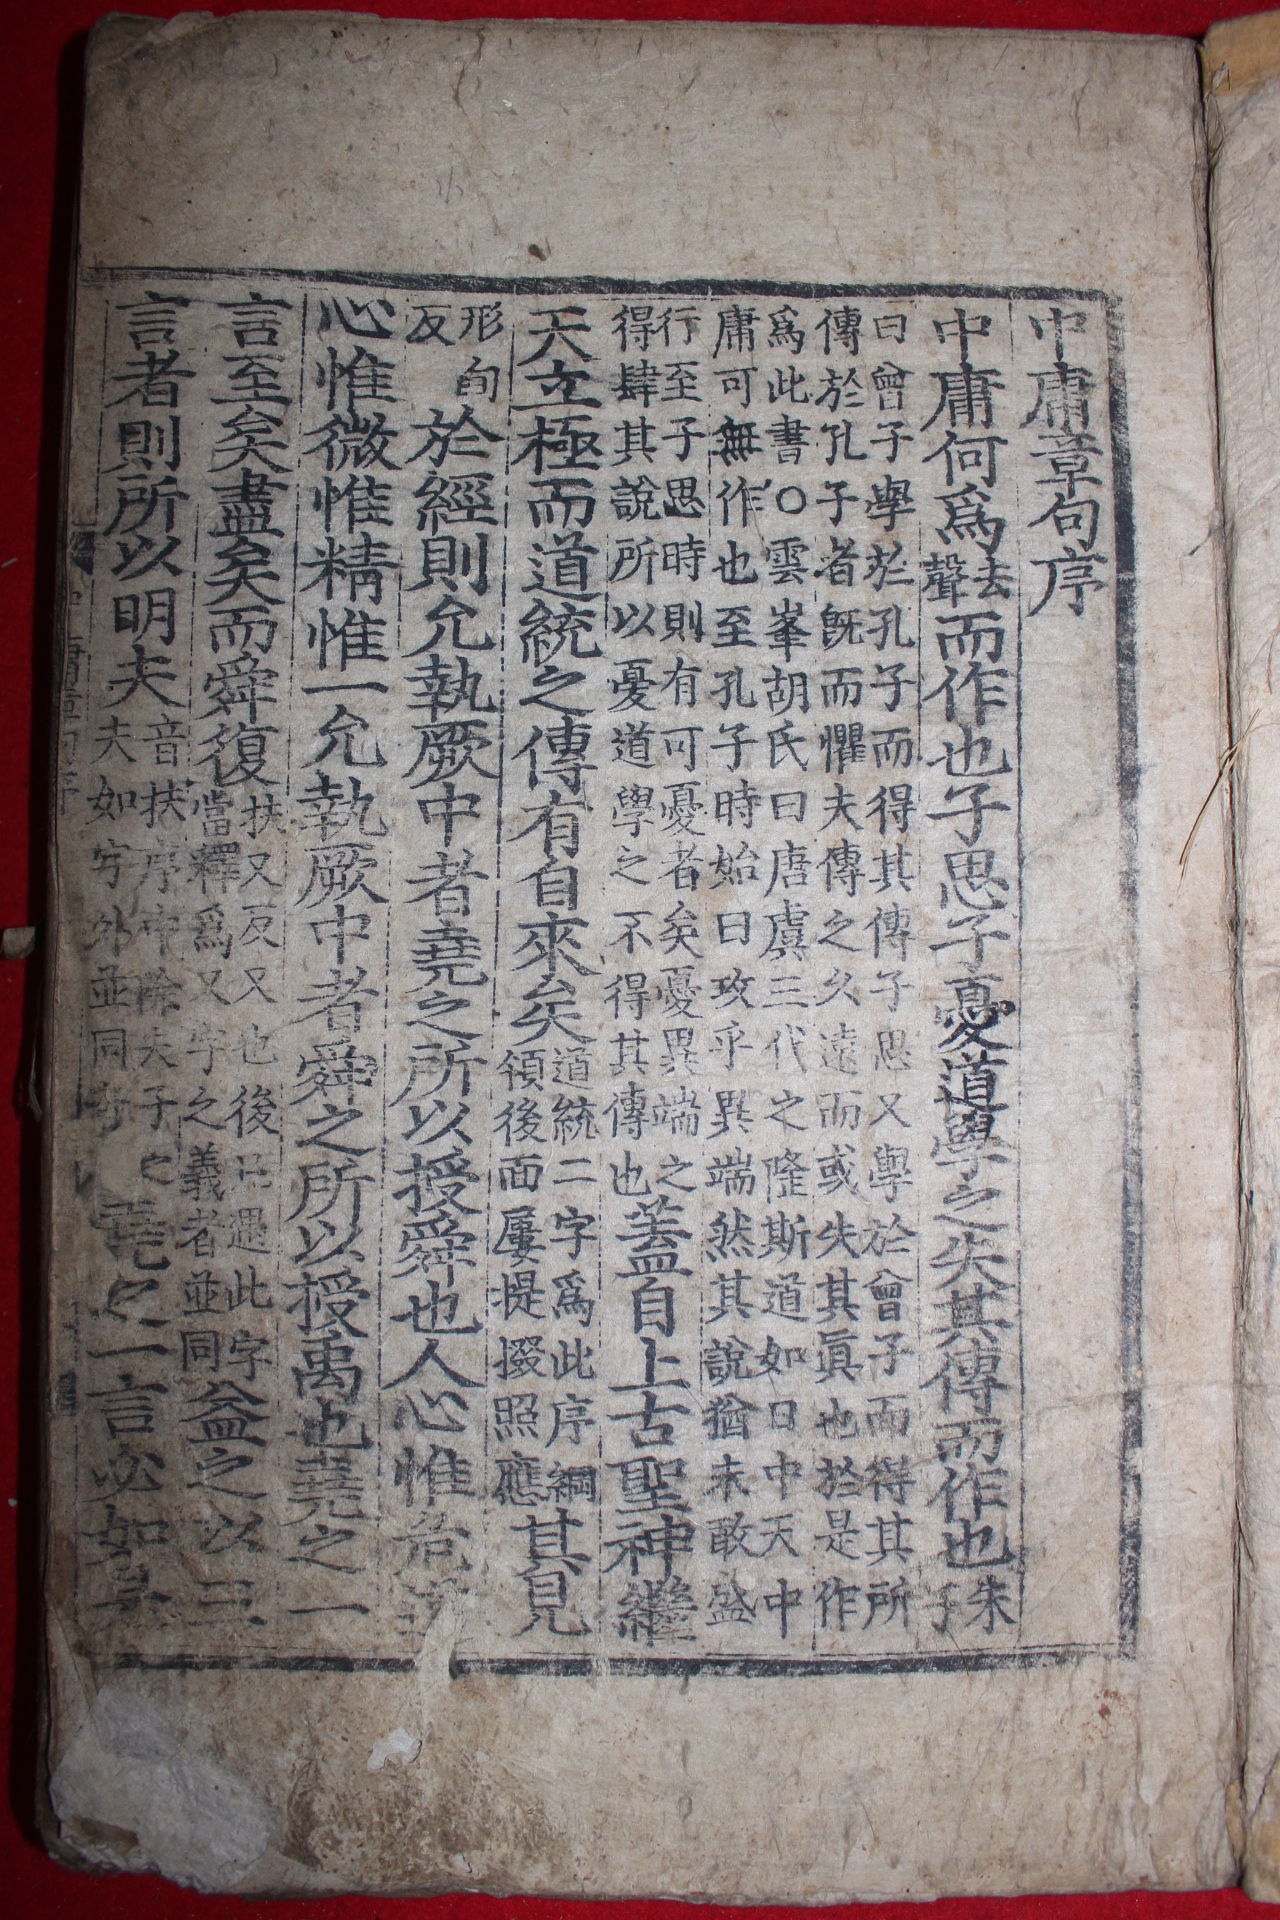 中庸章句序
中庸何爲去聲而作也子思子憂道學之失其傳而作也朱子
曰曾子學於孔子而得其傳子思又學於曾子而得其所
傳於孔子者旣而懼夫傳之久遠而或失其眞也於是作
爲此書○雲峯胡氏曰唐虞三代之隆斯道如日中天中
庸可無作也至孔子時始曰攻乎異端然其說猶未敢盛
行至子思時則有可憂者矣憂異端之
得肆其說所以憂道學之不得其傳也盖自上古聖神繼
天立極而道統之傳有自來矣道統二字爲此序綱領後面屢提掇照應其見
形甸反於經則允執厥中者堯之所以授舜也人心惟危道
心惟微惟精惟一允執厥中者舜之所以授禹也堯之一
言至矣盡矣而舜復扶又反又也後凡遇此字當釋爲又字之義者並同益之以三
言者則所以明夫音扶序中除夫子之夫如字外並同堯之一言必如是
中庸章句序